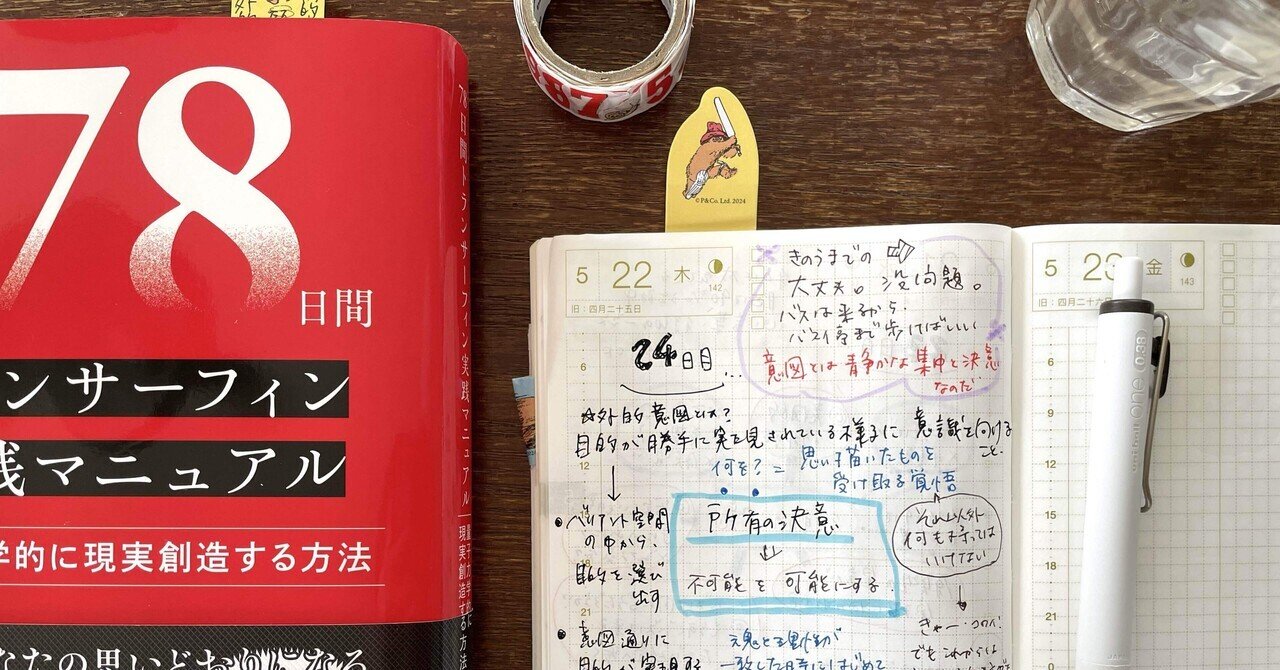 78
日間
ンサーフィン
践マニュアル
学的に現実創造する方法
なたの思いどおりになる
78日間トランサーフィン実践マニュアル
量子力学的に
現実創造する方法
©P&Co. Ltd. 2024
5 22 木
142
旧：四月二十五日
きのうまでの
大丈夫。没問題。
バスは来るから
バス停まで歩けばいい
意図とは静かな集中と決意
なのだ
24日目...
外的意図とは？
目的が勝手に実現されている様子に意識を向ける
こと。
何を？＝思い描いたものを
受け取る覚悟
所有の決意
不可能を可能にする
バリアント空間
の中から、
目的を選び
出す
それ以外
何も持っては
いけない
意図通りに
目的が実現する
魂と理性が
一致した時にはじめて
きゃー
でもこれからは
6
9
12
15
21
5 23 金
143
旧：四月二十六日
6
9
12
15
18
21
uni-ball One 0.38
JAPAN